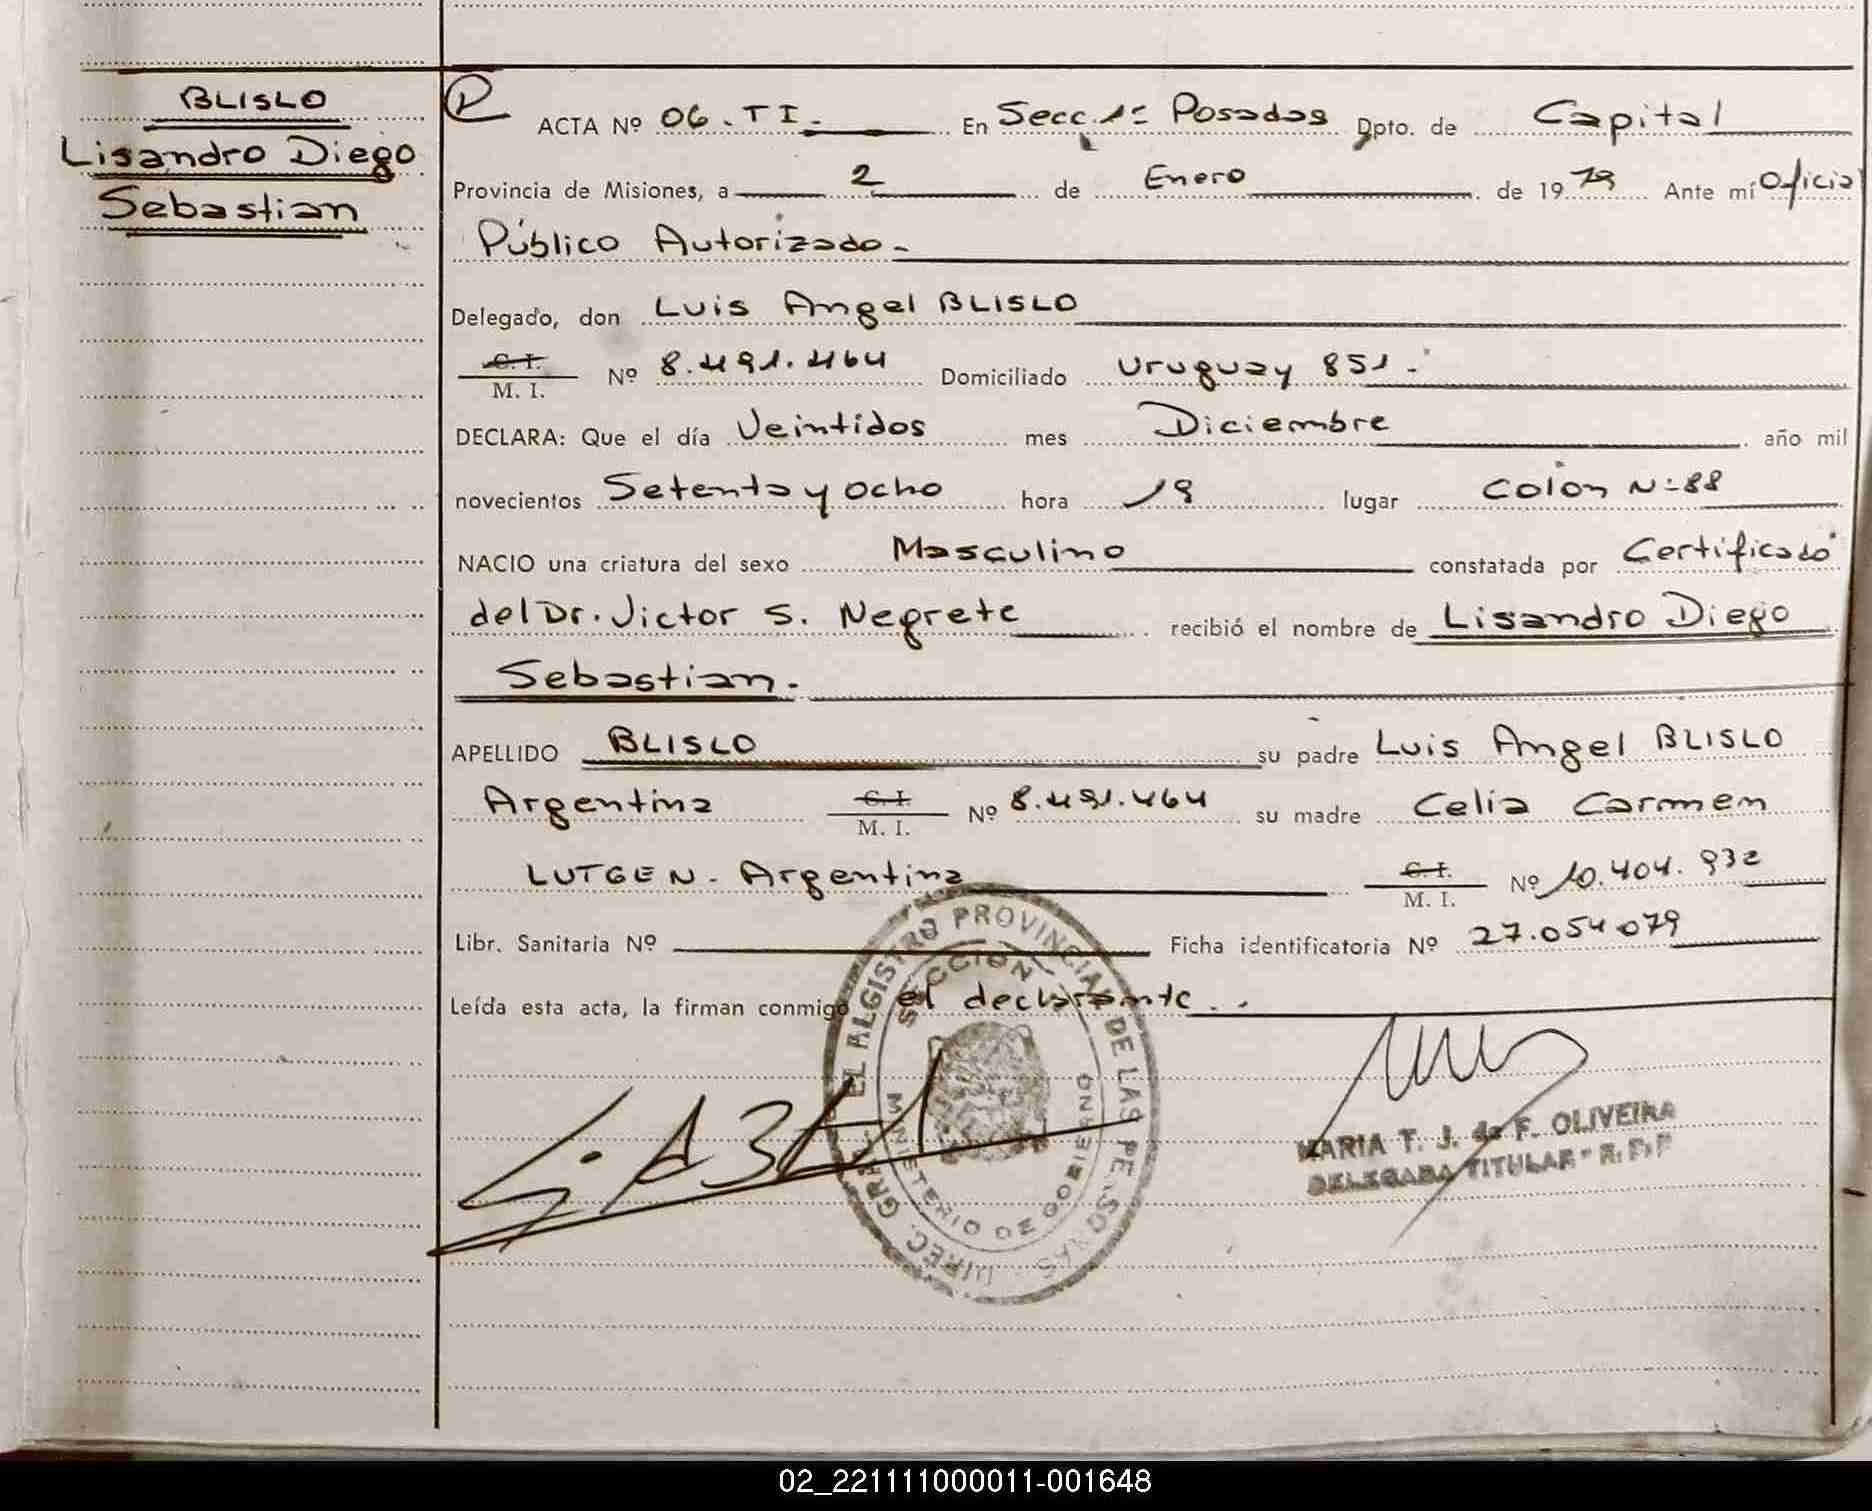 BLISLO
Lisandro Diego
Sebastian
P ACTA Nº 06. TI. En Secc. 1ª Posadas Dpto. de Capital
Provincia de Misiones, a 2 de Enero de 1979 Ante mí Oficial
Público Autorizado.-
Delegado, don Luis Angel BLISLO
C. I.
M. I. Nº 8.491.464 Domiciliado Uruguay 851.-
DECLARA: Que el día Veintidos mes Diciembre año mil
novecientos Setenta y ocho hora 18 lugar Colón Nº 88
NACIO una criatura del sexo Masculino constatada por Certificado
del Dr. Victor S. Negrete recibió el nombre de Lisandro Diego
Sebastian.-
APELLIDO BLISLO su padre Luis Angel BLISLO
Argentina C. I. M. I. Nº 8.491.464 su madre Celia Carmen
LUTGEN. Argentina C. I. M. I. Nº 10.404.932
Libr. Sanitaria Nº Ficha identificatoria Nº 27.054.079
Leída esta acta, la firman conmigo el declarante..
PROVINCIAL DE LAS PERSONAS
SECCION
MINISTERIO DE GOBIERNO
MARIA T. J. de F. OLIVEIRA
DELEGADA TITULAR - R. P. P
02_221111000011-001648